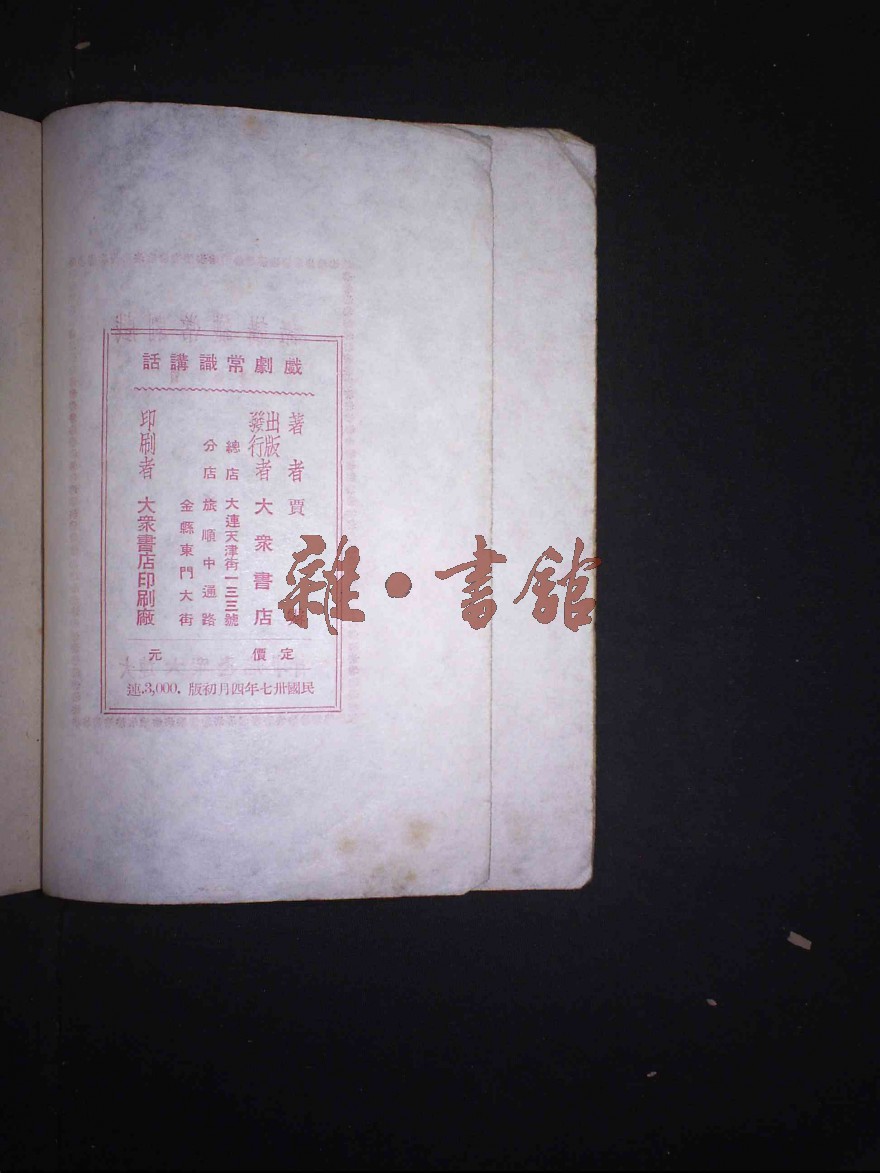 戲劇常識講話
著者 賈
出版發行者 大衆書店
總店 大連天津街一三三號
分店 旅順中通路
金縣東門大街
印刷者 大衆書店印刷廠
定價 元
民國卅七年四月初版．3,000．連
雜·書館